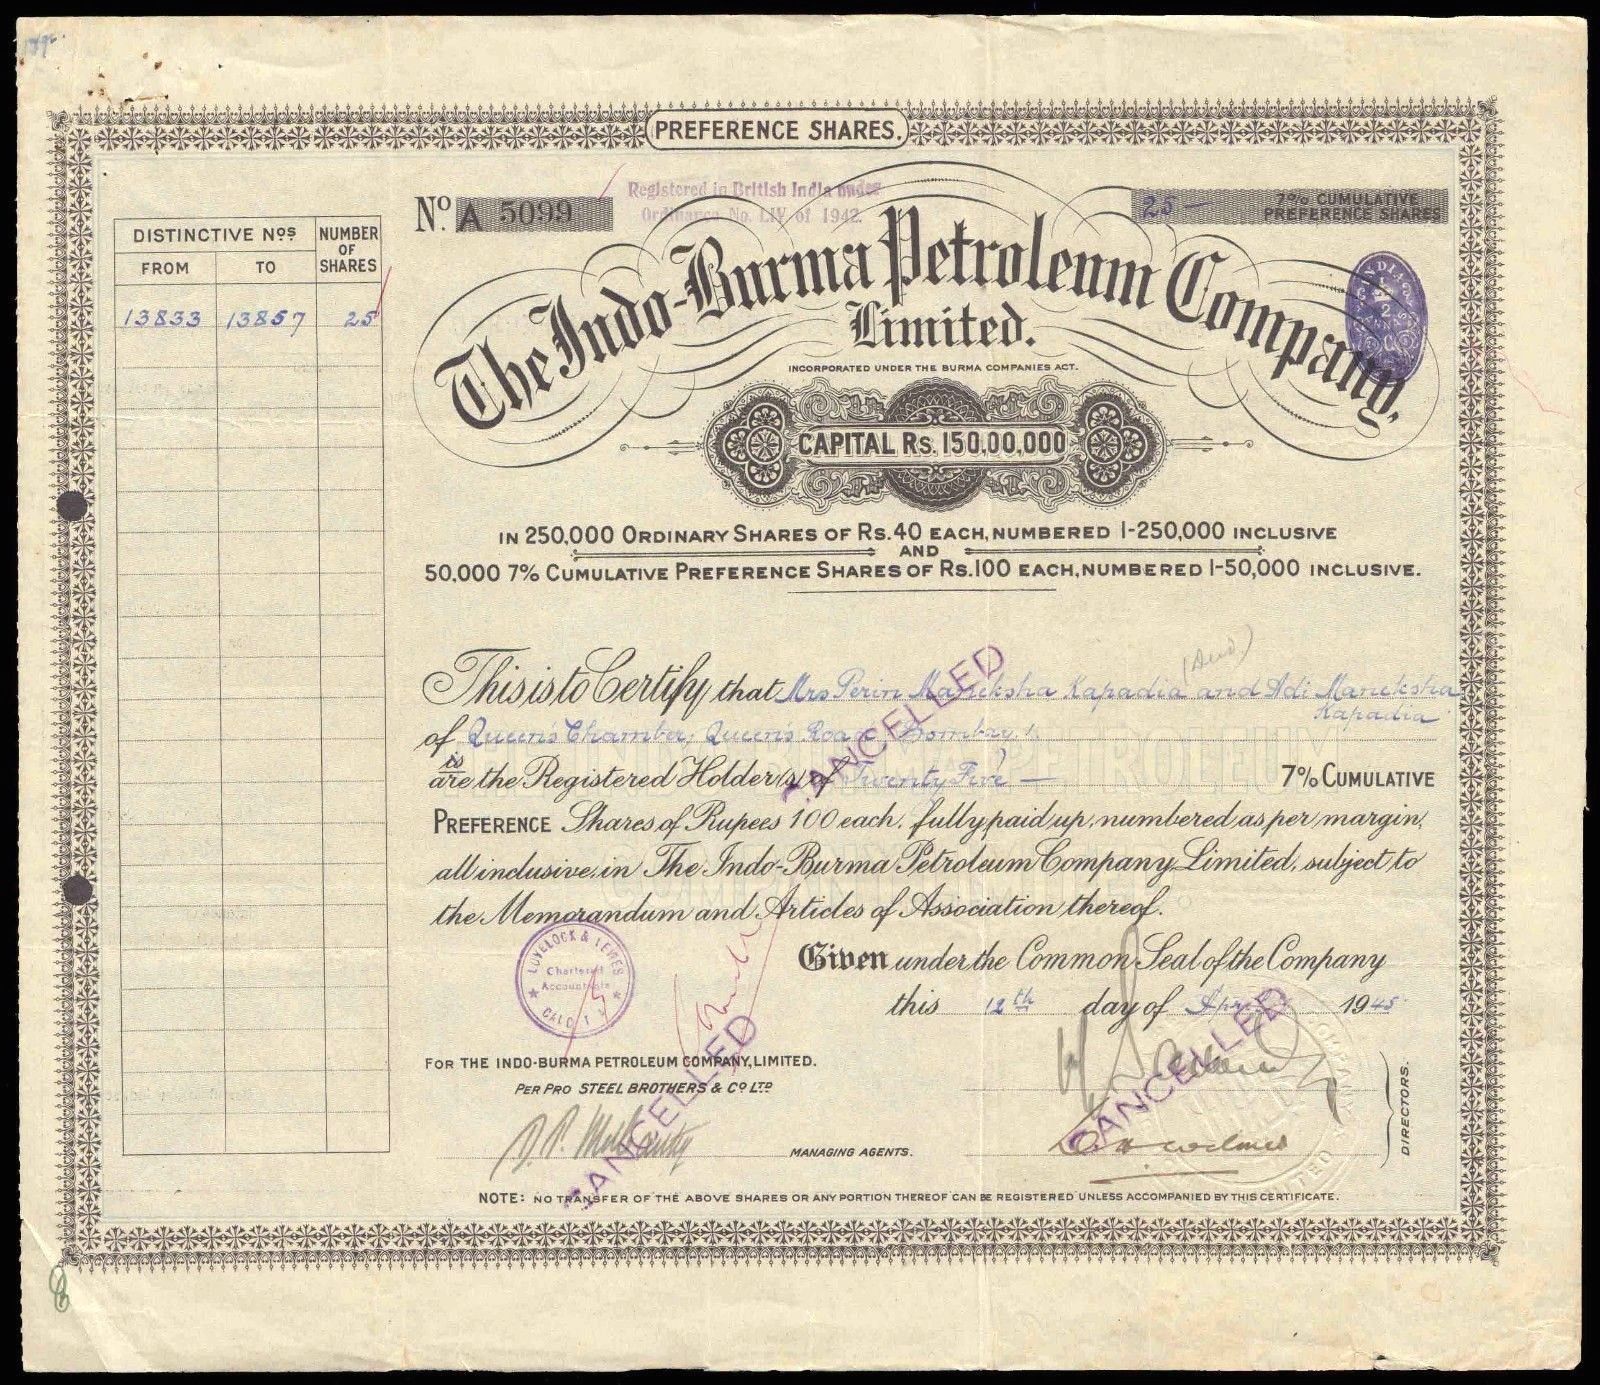 PREFERENCE SHARES.
No A 5099
Registered in British India under
Ordinance No. LIV of 1942.
25 —
7% CUMULATIVE
PREFERENCE SHARES
DISTINCTIVE Nos
NUMBER OF SHARES
FROM TO
13833 13857 25
The Indo-Burma Petroleum Company,
Limited.
INDIA
2 ANNAS
INCORPORATED UNDER THE BURMA COMPANIES ACT.
CAPITAL Rs. 150,00,000
IN 250,000 ORDINARY SHARES OF Rs.40 EACH, NUMBERED 1-250,000 INCLUSIVE
AND
50,000 7% CUMULATIVE PREFERENCE SHARES OF Rs.100 EACH, NUMBERED 1-50,000 INCLUSIVE.
This is to Certify that Mrs Perin Maneksha Kapadia and Adi Maneksha
Kapadia
of Queen's Chamber, Queen's Road Bombay 1.
is
are the Registered Holder(s) of Twenty Five — 7% CUMULATIVE
PREFERENCE Shares of Rupees 100 each, fully paid up, numbered as per margin,
all inclusive, in The Indo-Burma Petroleum Company, Limited, subject to
the Memorandum and Articles of Association thereof.
CANCELLED
Given under the Common Seal of the Company
this 12th day of April 1945
LOVELOCK & LEWES
Chartered
Accountants
CANCELLED
CANCELLED
FOR THE INDO-BURMA PETROLEUM COMPANY, LIMITED.
PER PRO STEEL BROTHERS & Co LTD
MANAGING AGENTS.
DIRECTORS.
NOTE: NO TRANSFER OF THE ABOVE SHARES OR ANY PORTION THEREOF CAN BE REGISTERED UNLESS ACCOMPANIED BY THIS CERTIFICATE.